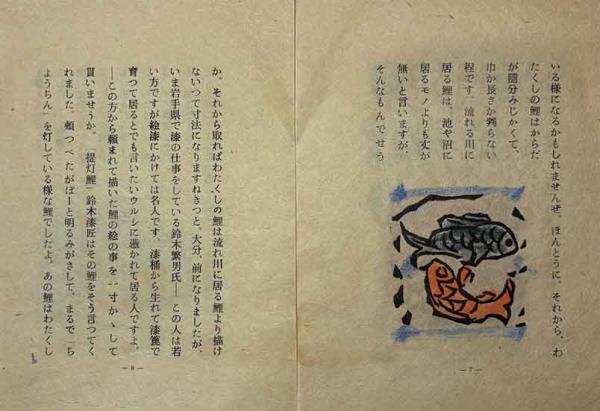 いる様になるかもしれませんぜ、ほんとうに。それから、わ
たくしの鯉はからだ
が随分みじかくて、
巾か長さか判らない
程です。流れる川に
居る鯉は、池や沼に
居るモノよりも丈が
無いと言いますが、
そんなもんでせう
—7—
か。それから取ればわたくしの鯉は流れ川に居る鯉より描け
ないつて寸法になりますねきつと。大分、前になりましたが、
いま岩手県で漆の仕事をしている鈴木繁男氏——この人は若
い方ですが絵漆にかけては名人です。漆桶から生れて漆箆で
育つて居るとでも言いたいウルシに憑かれて居る人ですよ。
——この方から頼まれて描いた鯉の絵の事を一寸かゝして
貰いませうか。「提灯鯉」鈴木漆匠はその鯉をそう言つてく
れました。頰つぺたがぽーと明るみがさして、まるで「ち
ようちん」を灯している様な鯉でしたよ。あの鯉はわたくし
—8—